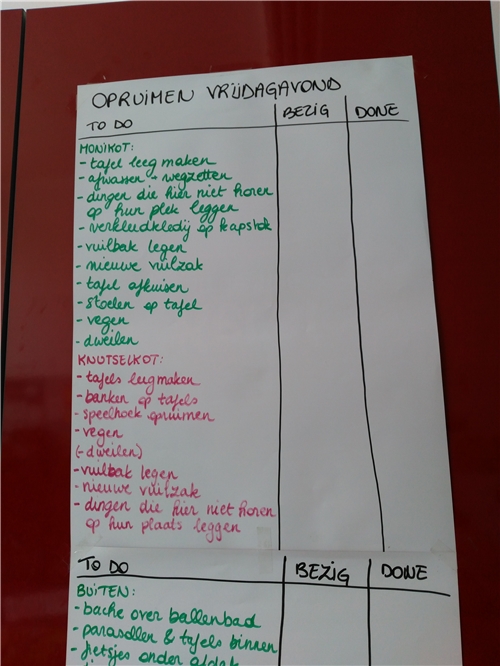 OPRUIMEN VRIJDAGAVOND
TO DO BEZIG DONE
MONIKOT:
- tafel leeg maken
- afwassen + wegzetten
- dingen die hier niet horen
op hun plek leggen
- verkleedkledij op kapstok
- vuilbak legen
- nieuwe vuilzak
- tafel afkuisen
- stoelen op tafel
- vegen
- dweilen
KNUTSELKOT:
- tafels leegmaken
- banken op tafels
- speelhoek opruimen
- vegen
(- dweilen)
- vuilbak legen
- nieuwe vuilzak
- dingen die hier niet horen
op hun plaats leggen
TO DO BEZIG DONE
BUITEN:
- bache over ballenbad
- parasollen & tafels binnen
- fietsjes onder afdak